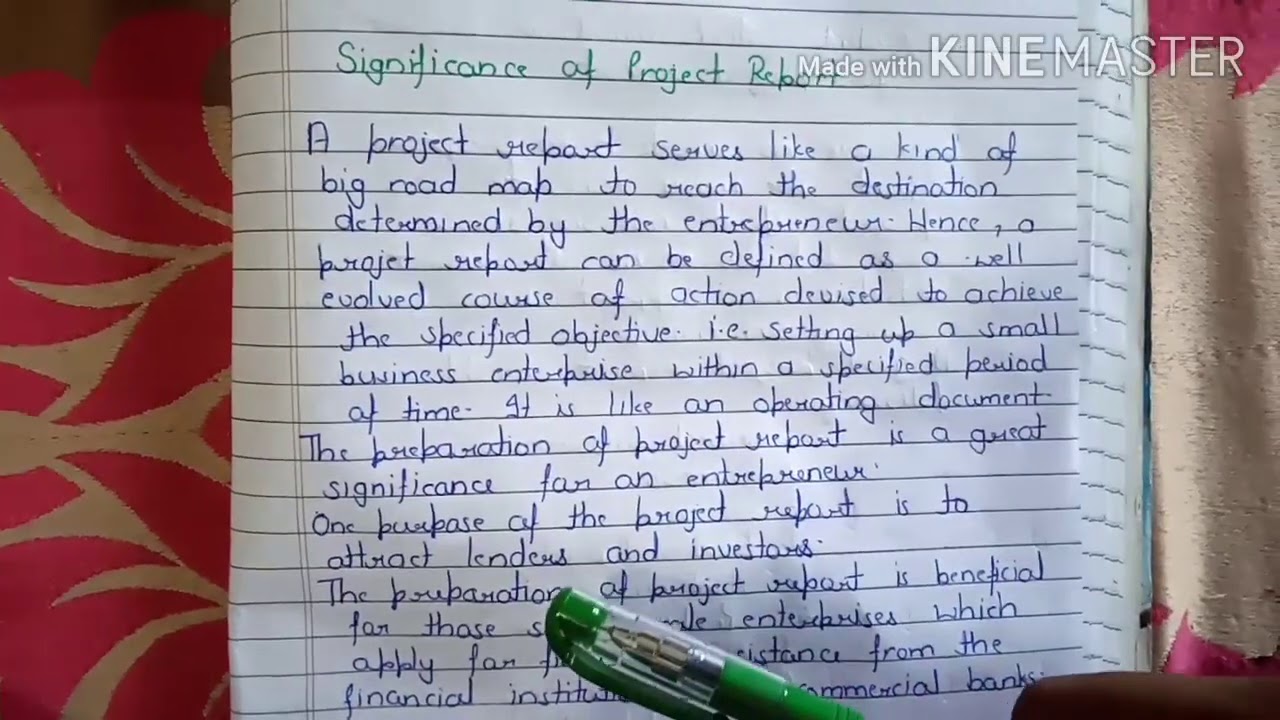 Significance of Project Report
Made with KINEMASTER
A project report serves like a kind of
big road map to reach the destination
determined by the entrepreneur. Hence, a
projet report can be defined as a well
evolved course of action devised to achieve
the specified objective. i.e. setting up a small
business enterprise within a specified period
of time. It is like an operating document.
The preparation of project report is a great
significance for an entrepreneur.
One purpose of the project report is to
attract lenders and investors.
The preparation of project report is beneficial
for those enterprises which
apply for from the
financial commercial banks.